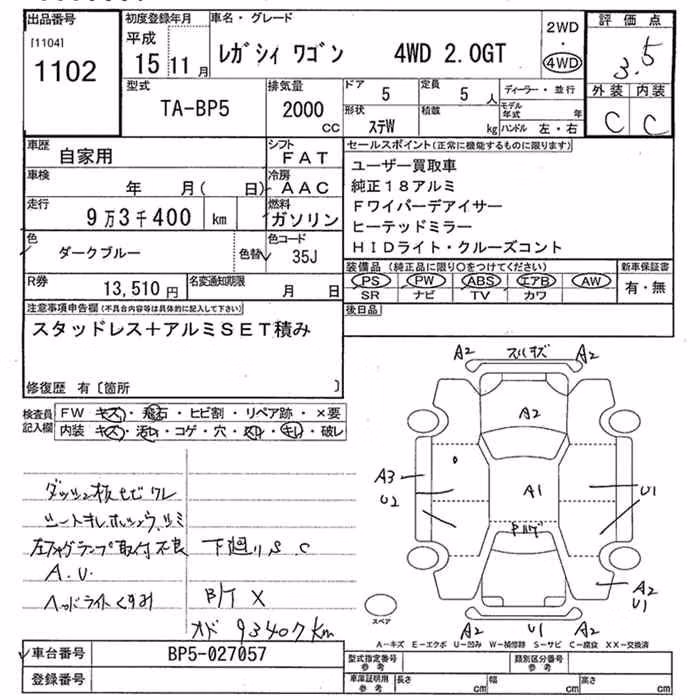 出品番号
[1104]
1102
初度登録年月
平成
15 11 月
車名・グレード
レガシィ ワゴン 4WD 2.0GT
2WD
・
4WD
評価点
3.5
外装 内装
C C
型式
TA-BP5
排気量
2000
CC
ドア
5
定員
5 人
形状
ステW
積載
kg
ディーラー・並行
モデル年式 年
ハンドル 左・右
車歴
自家用
シフト
FAT
車検
年 月( 日)
冷房
AAC
走行
9万3千400 km
燃料
ガソリン
色
ダークブルー
色替
色コード
35J
R券
13,510 円
名変通知期限
月 日
セールスポイント(正常に機能するものに限ります)
ユーザー買取車
純正18アルミ
Fワイパーデアイサー
ヒーテッドミラー
HIDライト・クルーズコント
装備品(純正品に限り○をつけてください)
PS PW ABS エアB AW
SR ナビ TV カワ
新車保証書
有・無
後日品
注意事項申告欄(不具合内容等は具体的に記入して下さい)
スタッドレス+アルミSET積み
修復歴 有〔箇所 〕
検査員記入欄
FW キズ・飛石・ヒビ割・リペア跡・×要
内装 キズ・汚れ・コゲ・穴・スレ・キレ・破レ
ダッシュ板ヒビワレ
シートキレ
左フォグランプ取付不良
A.U.
ヘッドライトくすみ
下廻りS.C
B/T X
オド 93407km
A2 スリキズ A2
A2
A3
U2
A1
U1
A2
U1
A2 U1 A2
スペア
A-キズ E-エクボ U-凹み W-補修跡 S-サビ C-腐食 XX-交換済
車台番号
BP5-027057
登録番号
型式指定番号
参考
類別区分番号
参考
車庫証明用
参考
長さ cm
幅 cm
高さ cm